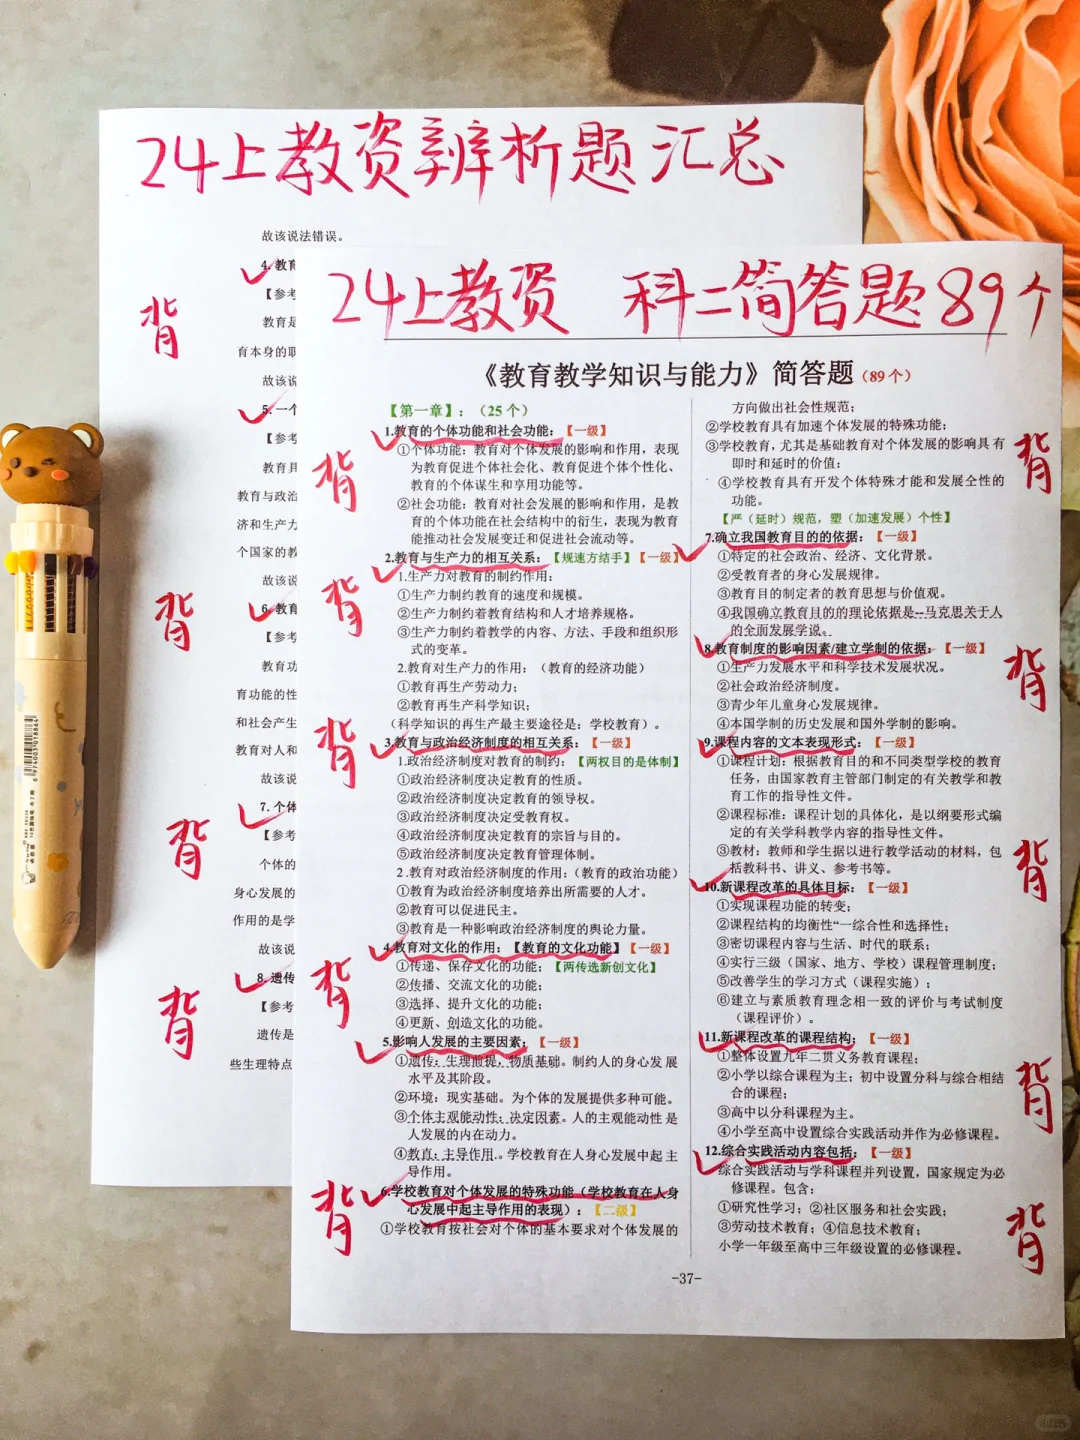 24上教资辨析题汇总
故该说法错误。
4.教育
【参考
教育是
育本身的职
故该说
5.一个
【参考
教育具
教育与政治
济和生产力
个国家的教
故该说
6.教育
【参考
教育功
育功能的性
和社会产生
教育对人和
故该说
7.个体
【参考
个体的
身心发展的
作用的是学
故该说
8.遗传
【参考
遗传是
些生理特点
背
背
背
背
24上教资 科二简答题89个
《教育教学知识与能力》简答题(89个)
【第一章】:(25个)
1.教育的个体功能和社会功能:【一级】
①个体功能:教育对个体发展的影响和作用,表现
为教育促进个体社会化、教育促进个体个性化、
教育的个体谋生和享用功能等。
②社会功能:教育对社会发展的影响和作用,是教
育的个体功能在社会结构中的衍生,表现为教育
能推动社会发展变迁和促进社会流动等。
2.教育与生产力的相互关系:【规速方结手】【一级】
1.生产力对教育的制约作用:
①生产力制约教育的速度和规模。
②生产力制约着教育结构和人才培养规格。
③生产力制约着教学的内容、方法、手段和组织形
式的变革。
2.教育对生产力的作用:(教育的经济功能)
①教育再生产劳动力;
②教育再生产科学知识;
(科学知识的再生产最主要途径是:学校教育)。
3.教育与政治经济制度的相互关系:【一级】
1.政治经济制度对教育的制约:【两权目的是体制】
①政治经济制度决定教育的性质。
②政治经济制度决定教育的领导权。
③政治经济制度决定受教育权。
④政治经济制度决定教育的宗旨与目的。
⑤政治经济制度决定教育管理体制。
2.教育对政治经济制度的作用:(教育的政治功能)
①教育为政治经济制度培养出所需要的人才。
②教育可以促进民主。
③教育是一种影响政治经济制度的舆论力量。
4.教育对文化的作用:【教育的文化功能】【一级】
①传递、保存文化的功能;【两传选新创文化】
②传播、交流文化的功能;
③选择、提升文化的功能;
④更新、创造文化的功能。
5.影响人发展的主要因素:【一级】
①遗传:生理前提,物质基础。制约人的身心发展
水平及其阶段。
②环境:现实基础。为个体的发展提供多种可能。
③个体主观能动性:决定因素。人的主观能动性是
人发展的内在动力。
④教育:主导作用.。学校教育在人身心发展中起主
导作用。
6.学校教育对个体发展的特殊功能(学校教育在人身
心发展中起主导作用的表现):【二级】
①学校教育按社会对个体的基本要求对个体发展的
背
背
背
背
背
方向做出社会性规范;
②学校教育具有加速个体发展的特殊功能;
③学校教育,尤其是基础教育对个体发展的影响具有
即时和延时的价值;
④学校教育具有开发个体特殊才能和发展全性的
功能。
【严(延时)规范,塑(加速发展)个性】
7.确立我国教育目的的依据:【一级】
①特定的社会政治、经济、文化背景。
②受教育者的身心发展规律。
③教育目的制定者的教育思想与价值观。
④我国确立教育目的的理论依据是--马克思关于人
的全面发展学说。
8.教育制度的影响因素/建立学制的依据:【一级】
①生产力发展水平和科学技术发展状况。
②社会政治经济制度。
③青少年儿童身心发展规律。
④本国学制的历史发展和国外学制的影响。
9.课程内容的文本表现形式:【一级】
①课程计划:根据教育目的和不同类型学校的教育
任务,由国家教育主管部门制定的有关教学和教
育工作的指导性文件。
②课程标准:课程计划的具体化,是以纲要形式编
定的有关学科教学内容的指导性文件。
③教材:教师和学生据以进行教学活动的材料,包
括教科书、讲义、参考书等。
10.新课程改革的具体目标:【一级】
①实现课程功能的转变;
②课程结构的均衡性“一综合性和选择性;
③密切课程内容与生活、时代的联系;
④实行三级(国家、地方、学校)课程管理制度;
⑤改善学生的学习方式(课程实施);
⑥建立与素质教育理念相一致的评价与考试制度
(课程评价)。
11.新课程改革的课程结构:【一级】
①整体设置九年二贯义务教育课程;
②小学以综合课程为主;初中设置分科与综合相结
合的课程;
③高中以分科课程为主。
④小学至高中设置综合实践活动并作为必修课程。
12.综合实践活动内容包括:【一级】
综合实践活动与学科课程并列设置,国家规定为必
修课程。包含:
①研究性学习;②社区服务和社会实践;
③劳动技术教育;④信息技术教育;
小学一年级至高中三年级设置的必修课程。
背
背
背
背
背
-37-
小红书